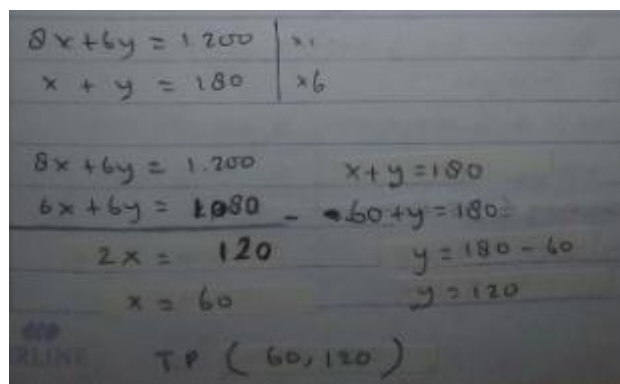 8x+6y = 1.200 | x1
x + y = 180 | x6
8x+6y = 1.200
6x+6y = 1080 -
2x = 120
x = 60
x+y=180
60+y=180
y = 180 - 60
y = 120
TP ( 60, 120 )